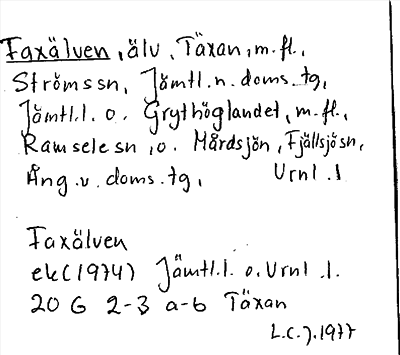 Faxälven, älv, Täxan, m.fl.,
Strömssn, Jämtl.n.doms.tg,
Jämtl.l. o. Grythöglandet, m.fl.,
Ramselesn, o. Mårdsjön, Fjällsjösn,
Ång.v.doms.tg, Vrnl.l
Faxälven
ek(1974) Jämtl.l. o.Vrnl.l.
20 G 2-3 a-b Täxan
L.C.J.1977